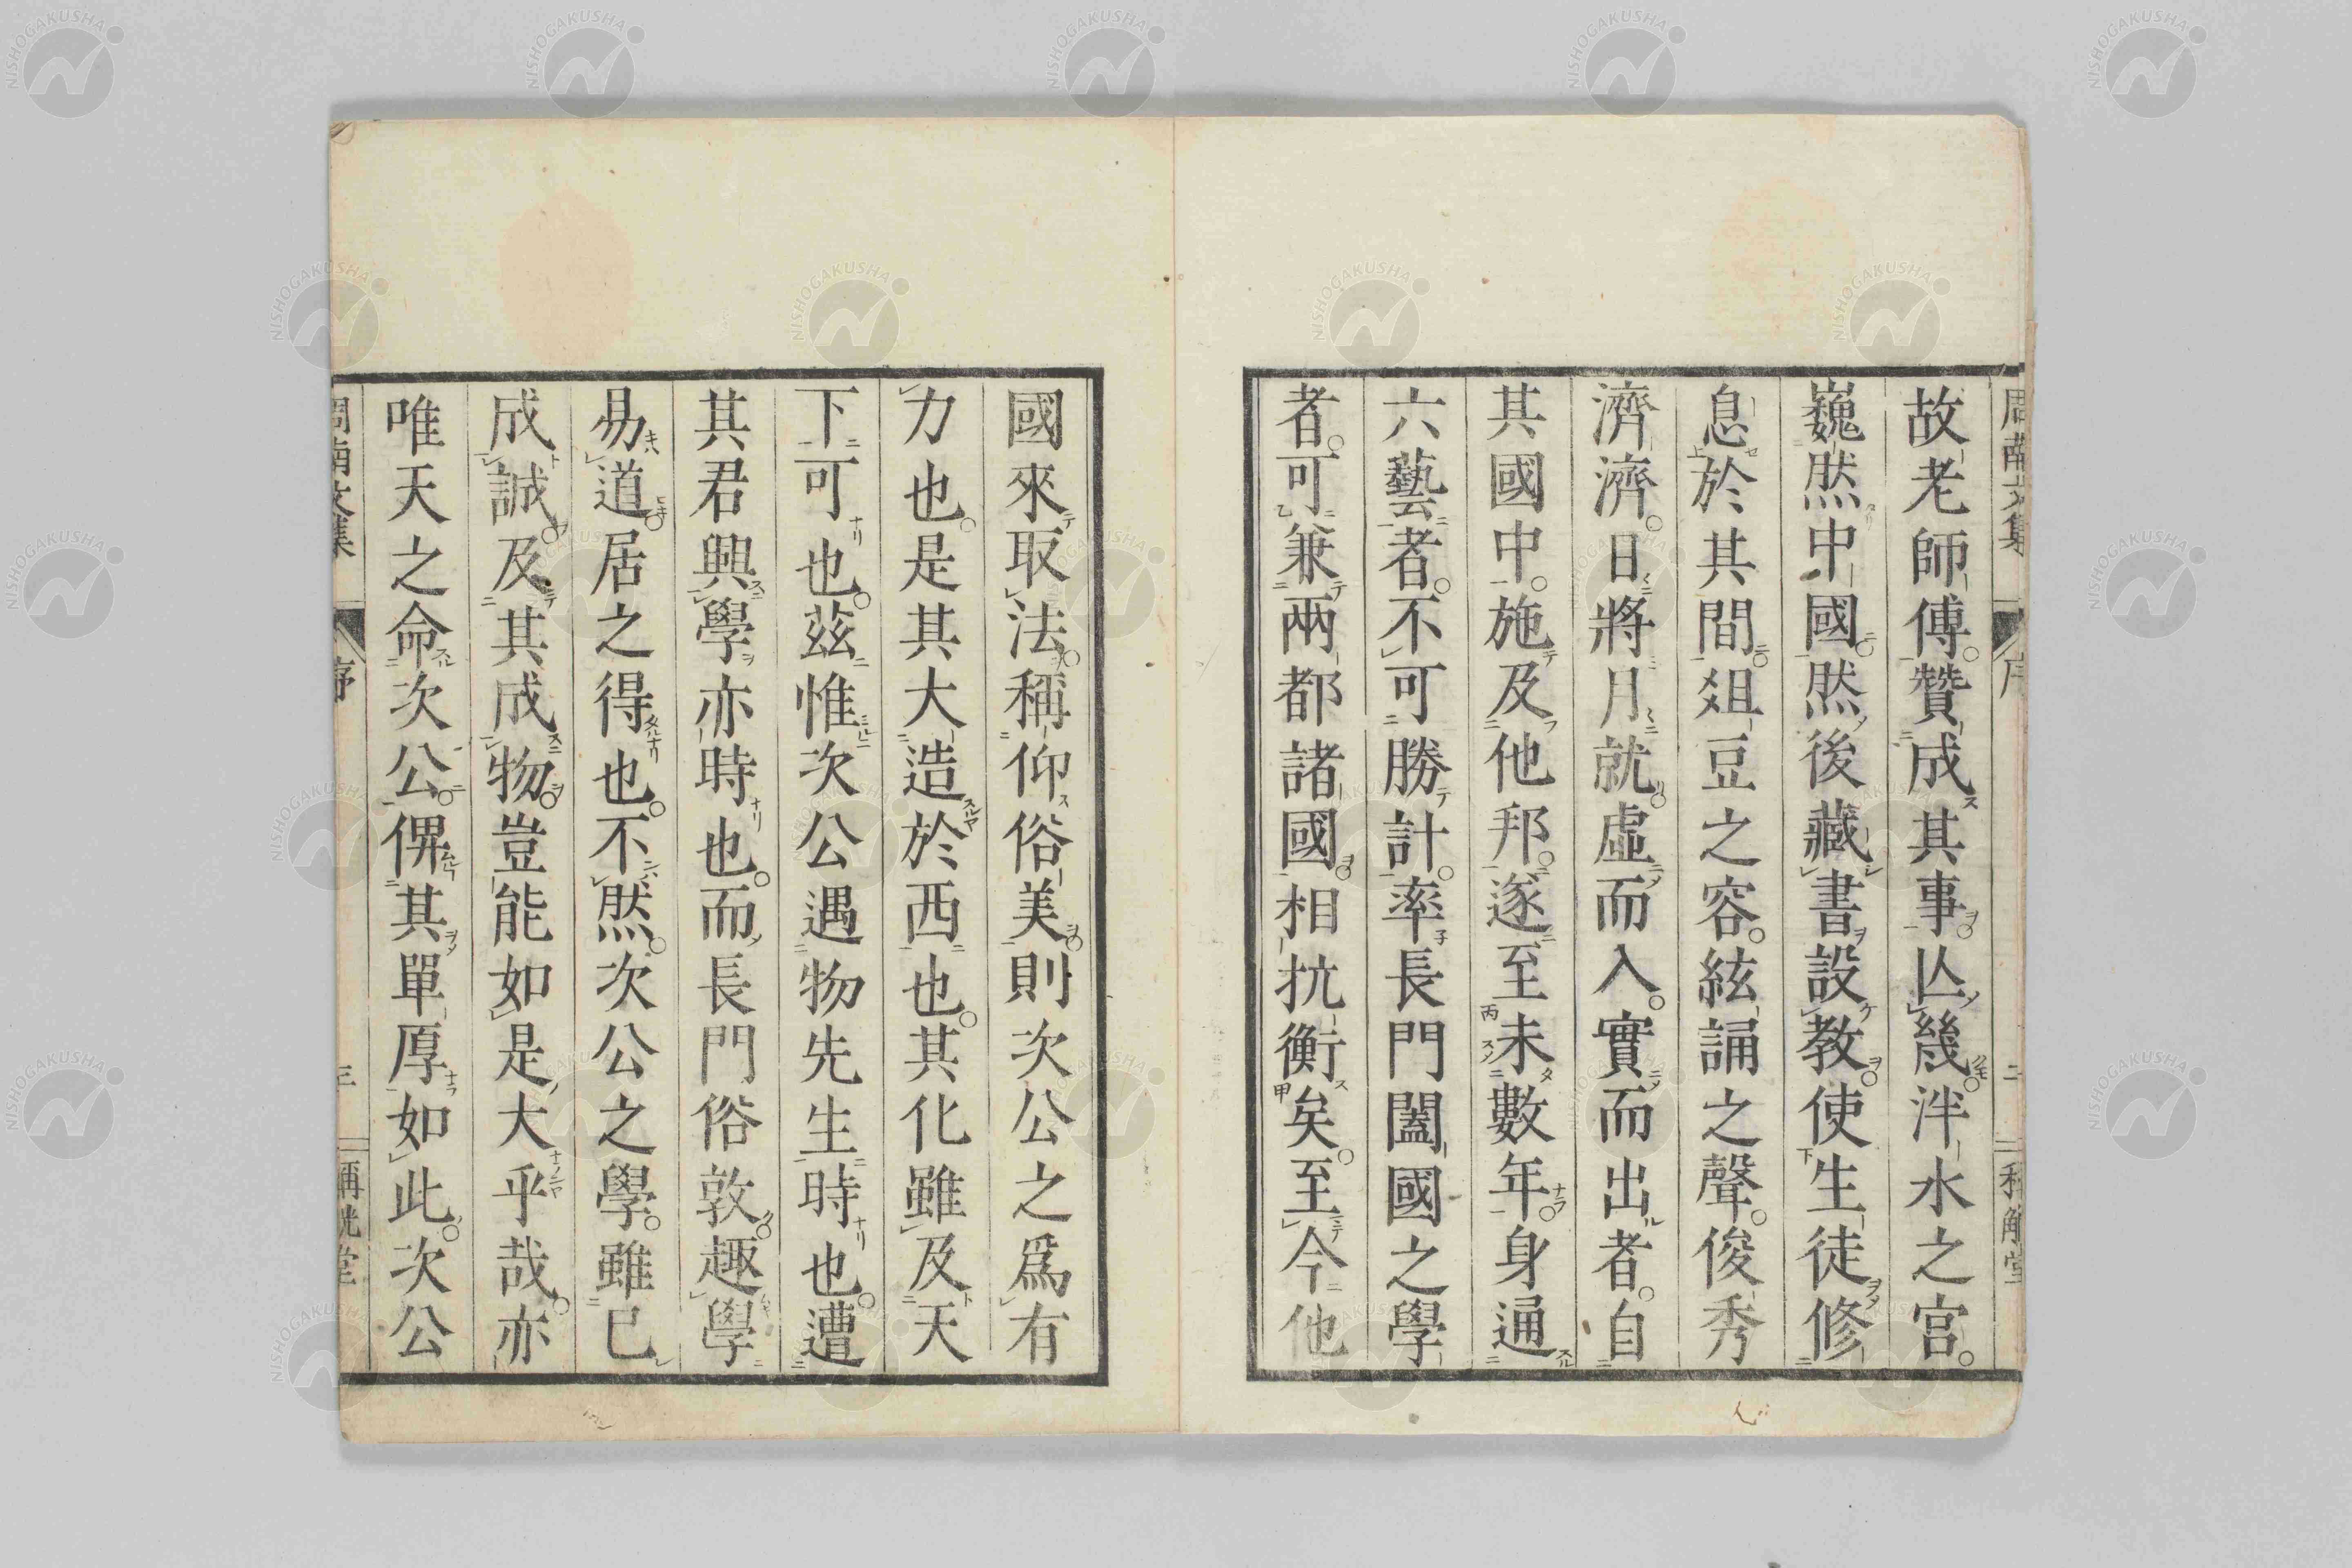 故老師傅贊成其事亾幾泮水之宮
巍然中國然後藏書設教使生徒修
息於其間俎豆之容絃誦之聲俊秀
濟濟日將月就虛而入實而出者自
其國中施及他邦遂至未數年身通
六藝者不可勝計率長門闔國之學
者可兼兩都諸國相抗衡矣至今他
國來取法稱仰俗美則次公之爲有
力也是其大造於西也其化雖及天
下可也茲惟次公遇物先生時也遭
其君興學亦時也而長門俗敦趣學
易道居之得也不然次公之學雖已
成誠及其成物豈能如是大乎哉亦
唯天之命次公俾其單厚如此次公
周南文集 序 三
NISHOGAKUSHA